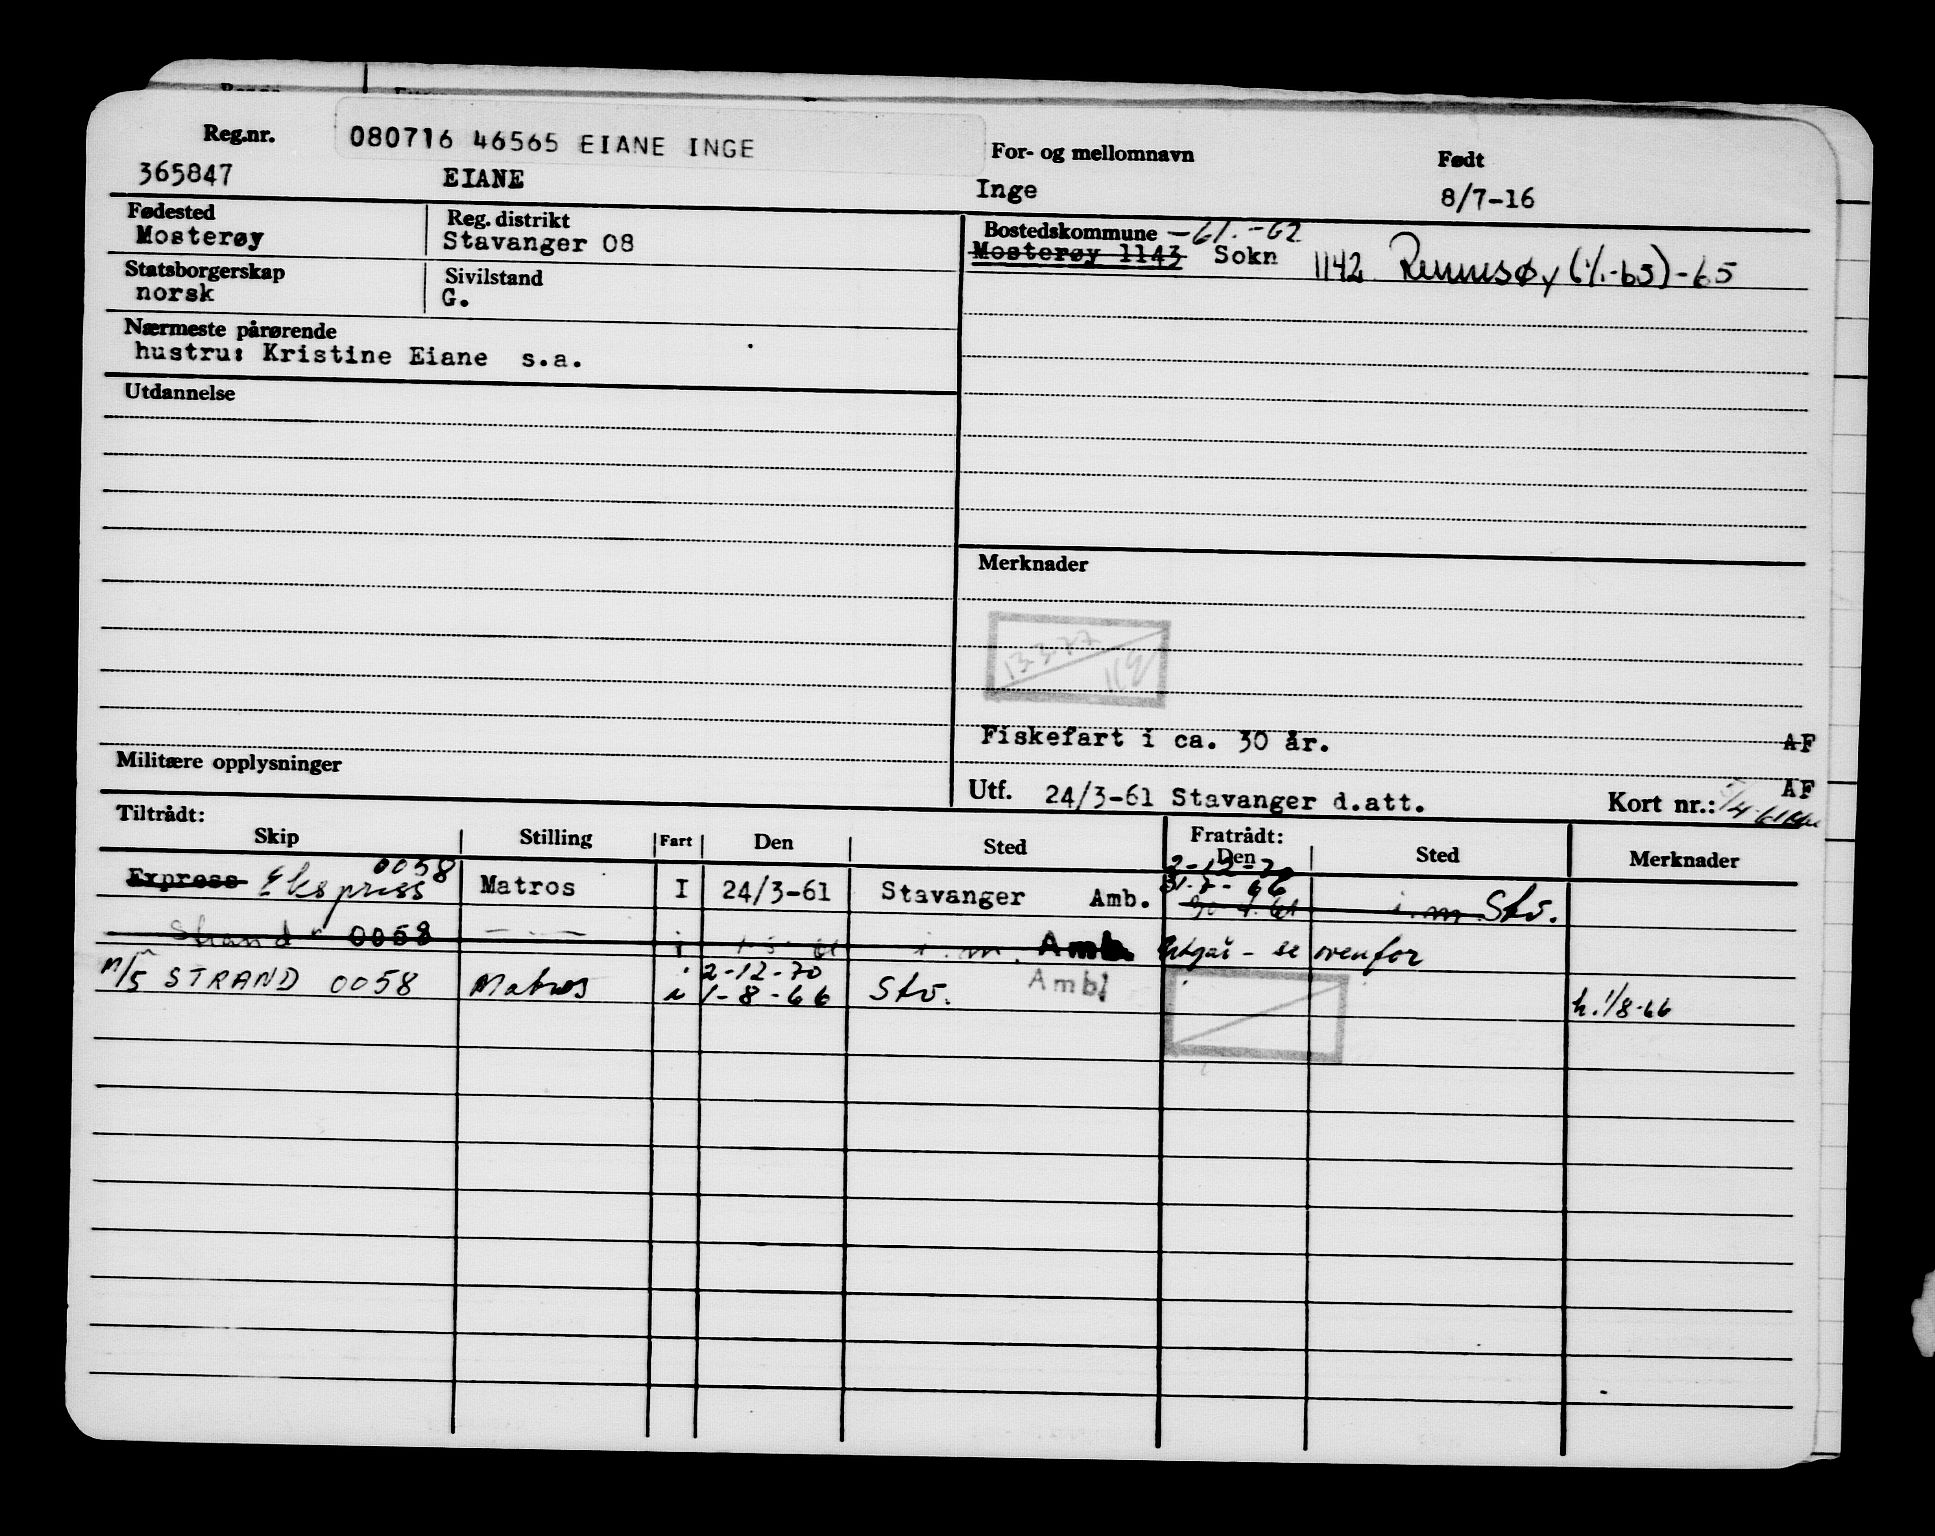 Reg.nr.
080716 46565 EIANE INGE
For- og mellomnavn
Født
365847
EIANE
Inge
8/7-16
Fødested
Mosterøy
Reg. distrikt
Stavanger 08
Bostedskommune -61.-62
Mosterøy 1143 Sokn 1142 Rennesøy (1/1-65)-65
Statsborgerskap
norsk
Sivilstand
G.
Nærmeste pårørende
hustru: Kristine Eiane s.a.
Utdannelse
Merknader
13377
Fiskefart i ca. 30 år.
AF
Militære opplysninger
AF
Utf. 24/3-61 Stavanger d.att.
Kort nr.:
Tiltrådt:
Skip
Stilling
Fart
Den
Sted
Fratrådt:
Den
Sted
Merknader
2-12-70
Express Ekspress 0058 Matros I 24/3-61 Stavanger Amb. 31-7-66
30.4.61 i.m. Stv.
Strand 0058 i i.m. Amb. Utgår - se ovenfor
2-12-70
M/S STRAND 0058 Matros i 1-8-66 Stv. Ambl
h. 1/8-66